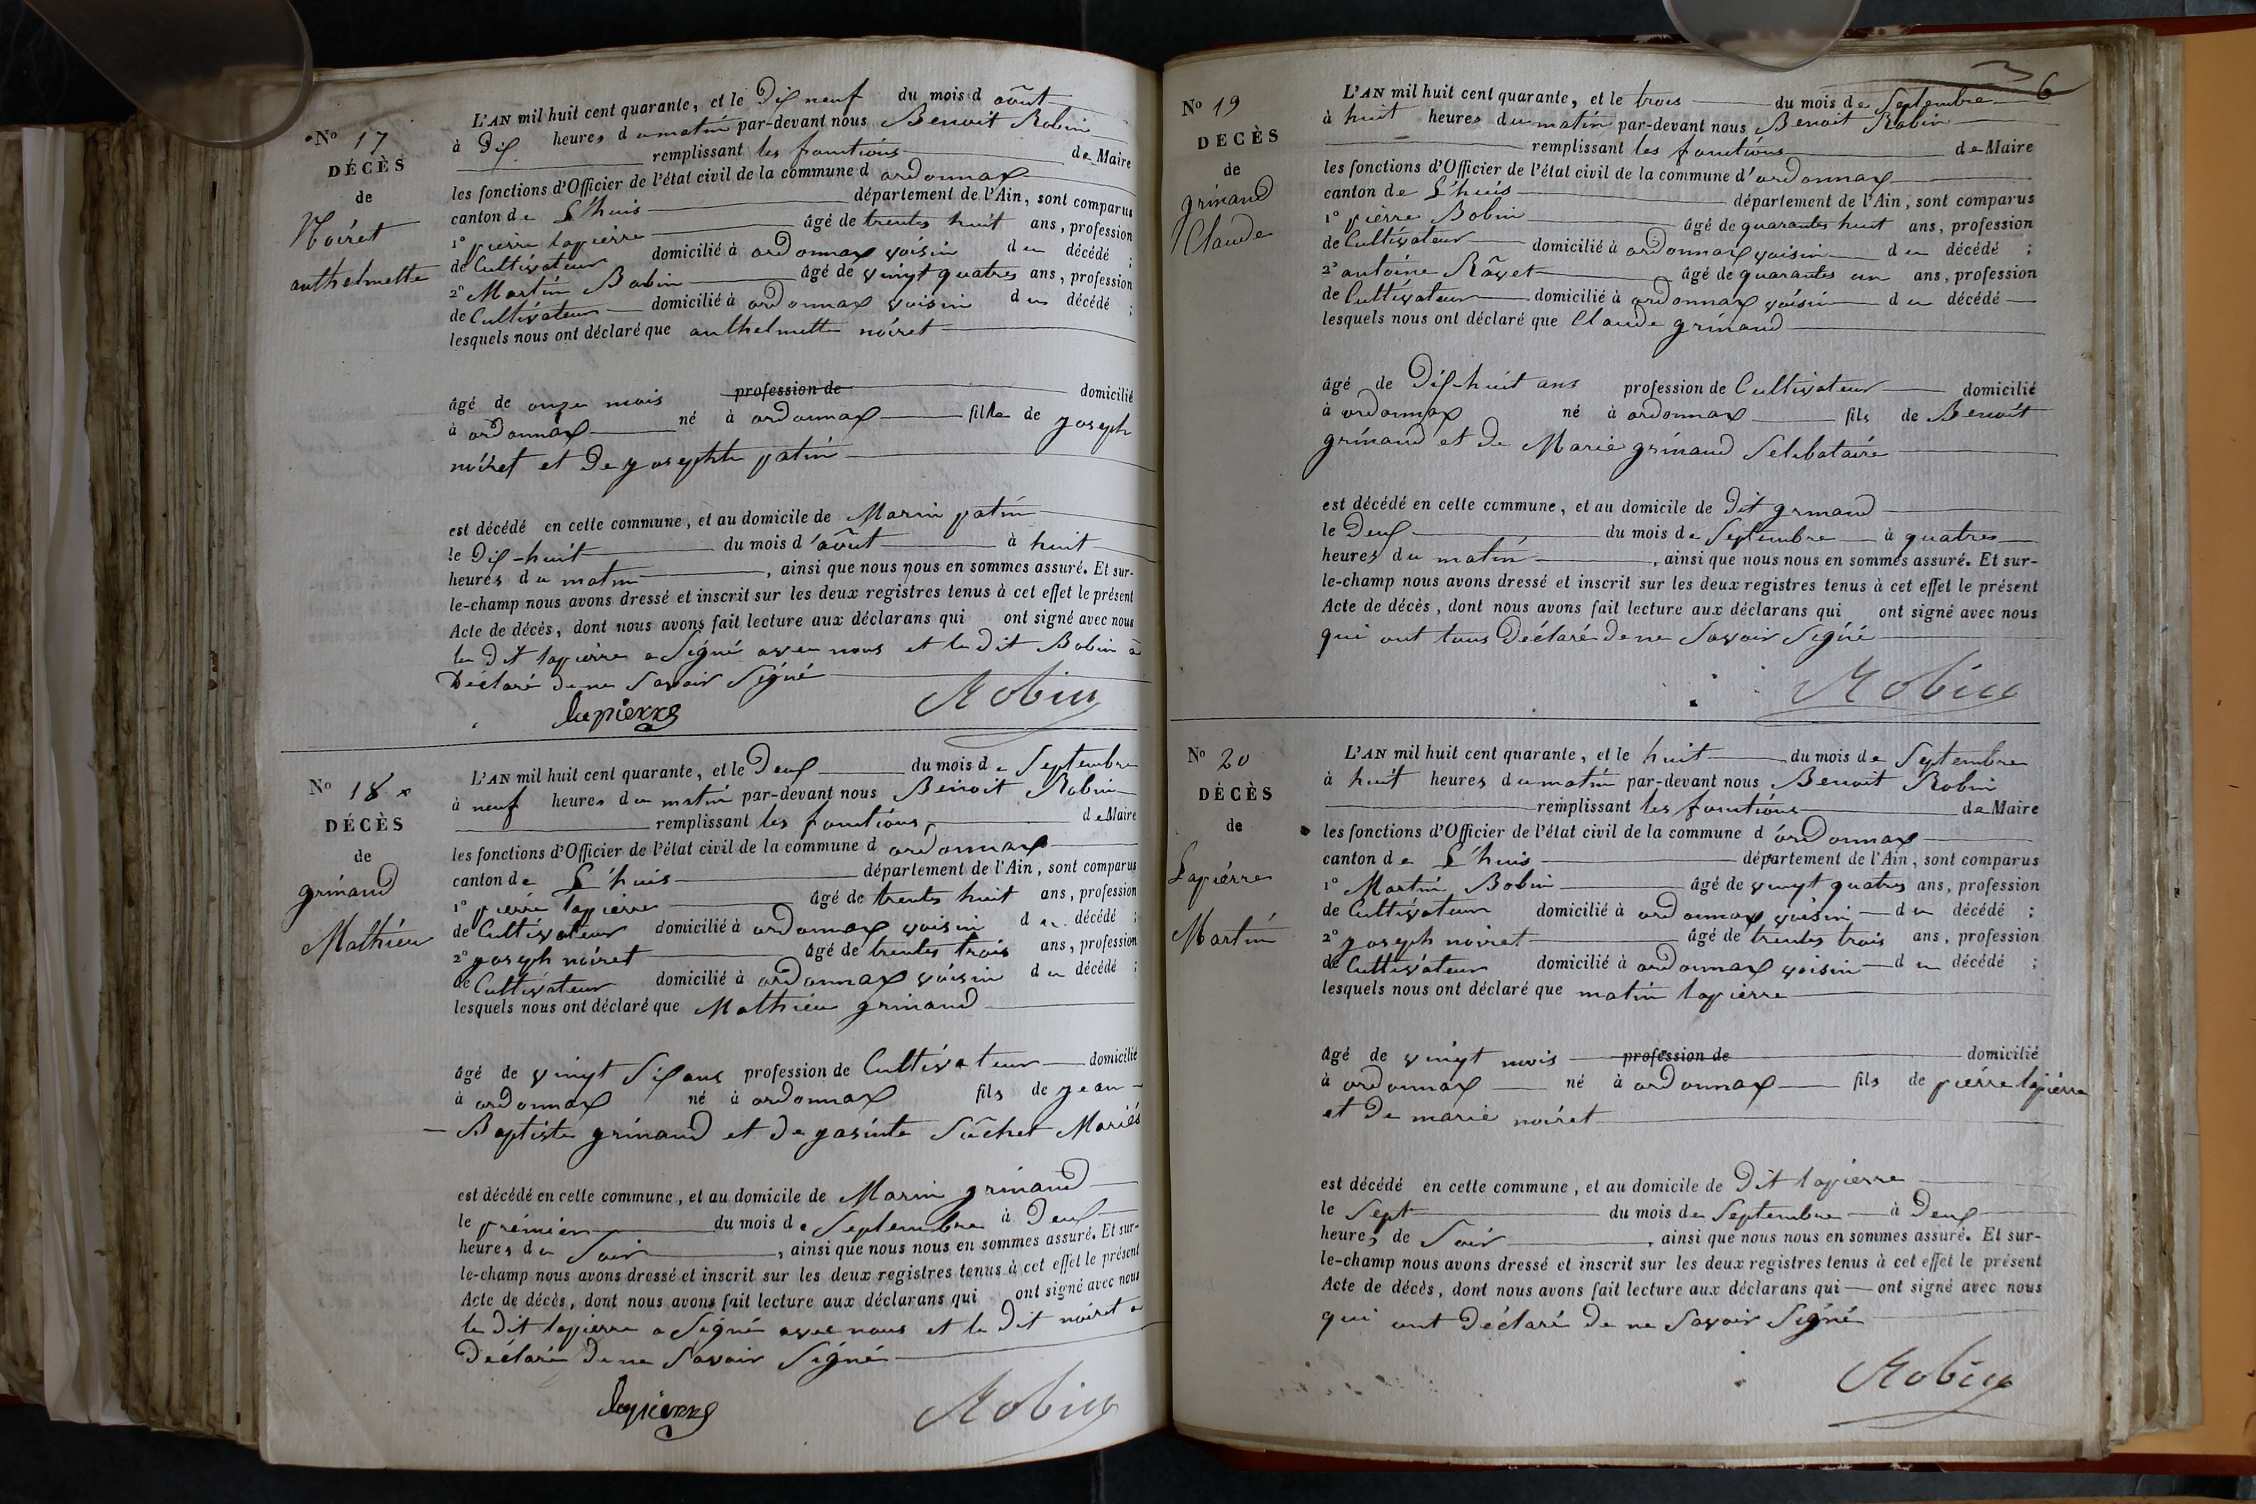 N° 17
DÉCÈS
de
Noiret
anthelmette
L'AN mil huit cent quarante, et le Dix neuf du mois d août
à Dix heures du matin par-devant nous Benoit Robin
remplissant les fonctions de Maire
les fonctions d'Officier de l'état civil de la commune d ordonnax
canton de L'huis département de l'Ain, sont comparus
1° pierre lapierre âgé de trentes huit ans, profession
de Cultivateur domicilié à ordonnax voisin du décédé ;
2° Martin Bobin âgé de vingt quatres ans, profession
de Cultivateur domicilié à ordonnax voisin du décédé ;
lesquels nous ont déclaré que anthelmette noiret
âgé de onze mois profession de domicilié
à ordonnax né à ordonnax fille de joseph
noiret et de josephte patin
est décédé en cette commune, et au domicile de Marin patin
le Dix-huit du mois d'août à huit
heures du matin, ainsi que nous nous en sommes assuré. Et sur-
le-champ nous avons dressé et inscrit sur les deux registres tenus à cet effet le présent
Acte de décès, dont nous avons fait lecture aux déclarans qui ont signé avec nous
le dit lapierre a Signé avec nous et le dit Bobin a
Déclaré de ne Savoir Signé
lapierre Robin
N° 18 x
DÉCÈS
de
grinand
Mathieu
L'AN mil huit cent quarante, et le Deux du mois de Septembre
à neuf heures du matin par-devant nous Benoit Robin
remplissant les fonctions de Maire
les fonctions d'Officier de l'état civil de la commune d ordonnax
canton de L'huis département de l'Ain, sont comparus
1° pierre lapierre âgé de trentes huit ans, profession
de Cultivateur domicilié à ordonnax voisin du décédé ;
2° joseph noiret âgé de trentes trois ans, profession
de Cultivateur domicilié à ordonnax voisin du décédé ;
lesquels nous ont déclaré que Mathieu grinand
âgé de vingt Six ans profession de Cultivateur domicilié
à ordonnax né à ordonnax fils de jean-
Baptiste grinand et de jasinte Sûchet Mariés
est décédé en cette commune, et au domicile de Marin grinand
le prémier du mois de Septembre à Deux
heures du Soir, ainsi que nous nous en sommes assuré. Et sur-
le-champ nous avons dressé et inscrit sur les deux registres tenus à cet effet le présent
Acte de décès, dont nous avons fait lecture aux déclarans qui ont signé avec nous
le dit lapierre a Signé avec nous et le Dit noiret a
Déclaré de ne Savoir Signé
lapierre Robin
6
N° 19
DÉCÈS
de
grinand
Claude
L'AN mil huit cent quarante, et le trois du mois de Septembre
à huit heures du matin par-devant nous Benoit Robin
remplissant les fonctions de Maire
les fonctions d'Officier de l'état civil de la commune d'ordonnax
canton de L'huis département de l'Ain, sont comparus
1° pierre Bobin âgé de quarantes huit ans, profession
de Cultivateur domicilié à ordonnax voisin du décédé ;
2° antoine Râvet âgé de quarantes un ans, profession
de Cultivateur domicilié à ordonnax voisin du décédé
lesquels nous ont déclaré que Claude grinand
âgé de Dix-huit ans profession de Cultivateur domicilié
à ordonnax né à ordonnax fils de Benoit
grinand et de Marie grinand Selibataire
est décédé en cette commune, et au domicile de Dit grinand
le Deux du mois de Septembre à quatres
heures du matin, ainsi que nous nous en sommes assuré. Et sur-
le-champ nous avons dressé et inscrit sur les deux registres tenus à cet effet le présent
Acte de décès, dont nous avons fait lecture aux déclarans qui ont signé avec nous
qui ont tous Déclaré de ne Savoir Signé
Robin
N° 20
DÉCÈS
de
Lapierre
Martin
L'AN mil huit cent quarante, et le huit du mois de Septembre
à huit heures du matin par-devant nous Benoit Robin
remplissant les fonctions de Maire
les fonctions d'Officier de l'état civil de la commune d ordonnax
canton de L'huis département de l'Ain, sont comparus
1° Martin Bobin âgé de vingt quatres ans, profession
de Cultivateur domicilié à ordonnax voisin du décédé ;
2° joseph noiret âgé de trentes trois ans, profession
de Cultivateur domicilié à ordonnax voisin du décédé ;
lesquels nous ont déclaré que matin lapierre
âgé de vingt mois profession de domicilié
à ordonnax né à ordonnax fils de pierre lapierre
et de marie noiret
est décédé en cette commune, et au domicile de Dit lapierre
le Sept du mois de Septembre à Deux
heures de Soir, ainsi que nous nous en sommes assuré. Et sur-
le-champ nous avons dressé et inscrit sur les deux registres tenus à cet effet le présent
Acte de décès, dont nous avons fait lecture aux déclarans qui ont signé avec nous
qui ont Déclaré de ne Savoir Signé
Robin